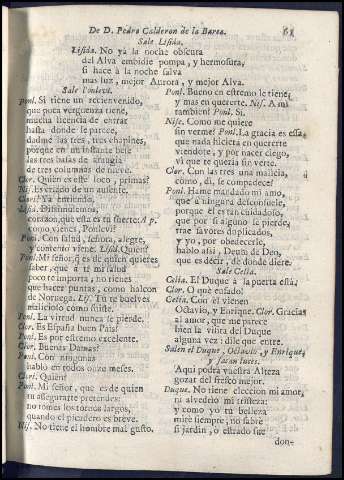 De D. Pedro Calderon de la Barca. 61
Sale Lisida.
Lisida. No ya la noche obscura
del Alva embidie pompa, y hermosura,
si hace à la noche salva
mas luz, mejor Aurora, y mejor Alva.
Sale Ponlevì.
Ponl. Si tiene un recienvenido,
que poca verguenza tiene,
mucha licencia de entrar
hasta donde le parece,
dadme las tres, tres chapines,
porque en un instante bese
las tres bafas de
de tres columnas de nieve.
Clor. Quien es este loco, primas?
Nis. Es criado de un ausente.
Clori. Ya entiendo.
Lisid. Dissimulemos,
corazon, que esta es tu suerte: A p.
como vienes, Ponlevì?
Ponl. Con salud, señora, alegre,
y contento viene. Lisid. Quien?
Ponl. Mi señor, q es de quien quieres
saber, que à tè mi salud
poco te importa, no tienes
que hacer puntas, como halcon
de Noruega. Lis. Tù te buelves
malicioso como siempre.
Ponl. La virtud nunca se pierde.
Clor. Es España buen Pais?
Ponl. Es por estremo excelente.
Clor. Buenas Damas?
Ponl. Con ningunas
hablo en todos onze meses.
Clori. Quien?
Ponl. Mi señor, que es de quien
tu assegurarte pretendes:
no tomes los tornos largos,
quando el picadero es breve.
Nis. No tiene el hombre mal gusto.
Ponl. Bueno en estremo le tiene,
y mas en quererte. Nis. A mi
tambien? Ponl. Si.
Nise. Como me quiere
sin verme? Ponl. La gracia es essa,
que nada hiciera en quererte
viendote, y por hacer ciego,
vì que te queria sin verte.
Clor. Con las tres una malicia,
còmo, dì, se compadece?
Ponl. Hame mandado mi amo,
que à ninguna desconsuele,
porque èl es tan cuidadoso,
que por si alguno se pierde,
trae favores duplicados,
y yo, por obedecerle,
hablo assi, Deum de Deo,
que es decir, de donde diere.
Sale Celia.
Celia. El Duque à la puerta està;
Clor. O què enfado!
Celia. Con èl vienen
Octavio, y Enrique. Clor. Gracias
al amor, que me parece
bien la visita del Duque
alguna vez: dile que entre.
Salen el Duque, Octavio, y Enrique,
y sacan luces.
Aqui podrà vuestra Alteza
gozar del fresco mejor.
Duque. No tiene eleccion mi amor,
ni alvedrio mi tristeza:
y como yo tu belleza
mire siempre, no sabrè
si jardin, ò estrado fue
don-